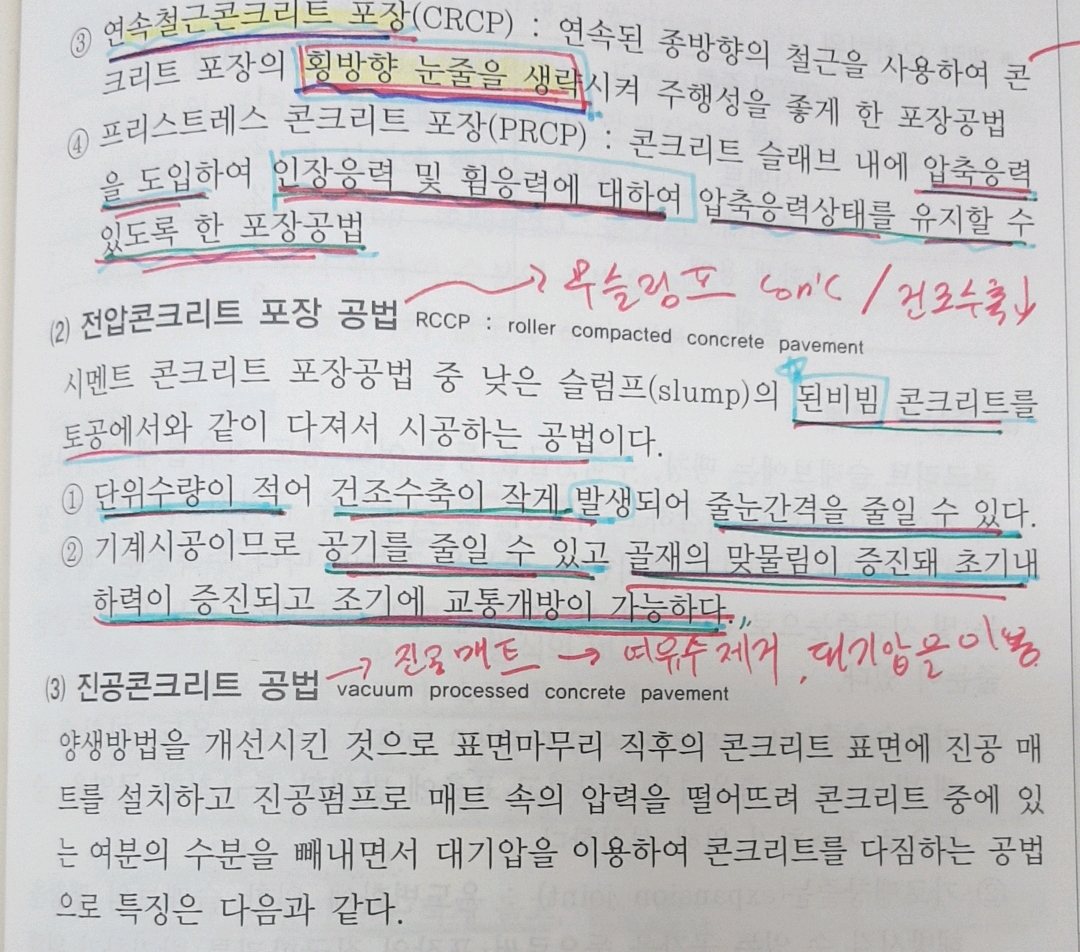 ③ 연속철근콘크리트 포장(CRCP) : 연속된 종방향의 철근을 사용하여 콘
크리트 포장의 횡방향 눈줄을 생략시켜 주행성을 좋게 한 포장공법
④ 프리스트레스 콘크리트 포장(PRCP) : 콘크리트 슬래브 내에 압축응력
을 도입하여 인장응력 및 휨응력에 대하여 압축응력상태를 유지할 수
있도록 한 포장공법
→ 무슬럼프 con'c / 건조수축↓
(2) 전압콘크리트 포장 공법 RCCP : roller compacted concrete pavement
시멘트 콘크리트 포장공법 중 낮은 슬럼프(slump)의 된비빔 콘크리트를
토공에서와 같이 다져서 시공하는 공법이다.
① 단위수량이 적어 건조수축이 작게 발생되어 줄눈간격을 줄일 수 있다.
② 기계시공이므로 공기를 줄일 수 있고 골재의 맞물림이 증진돼 초기내
하력이 증진되고 조기에 교통개방이 가능하다.
→ 진공매트 → 여유수 제거, 대기압을 이용
(3) 진공콘크리트 공법 vacuum processed concrete pavement
양생방법을 개선시킨 것으로 표면마무리 직후의 콘크리트 표면에 진공 매
트를 설치하고 진공펌프로 매트 속의 압력을 떨어뜨려 콘크리트 중에 있
는 여분의 수분을 빼내면서 대기압을 이용하여 콘크리트를 다짐하는 공법
으로 특징은 다음과 같다.